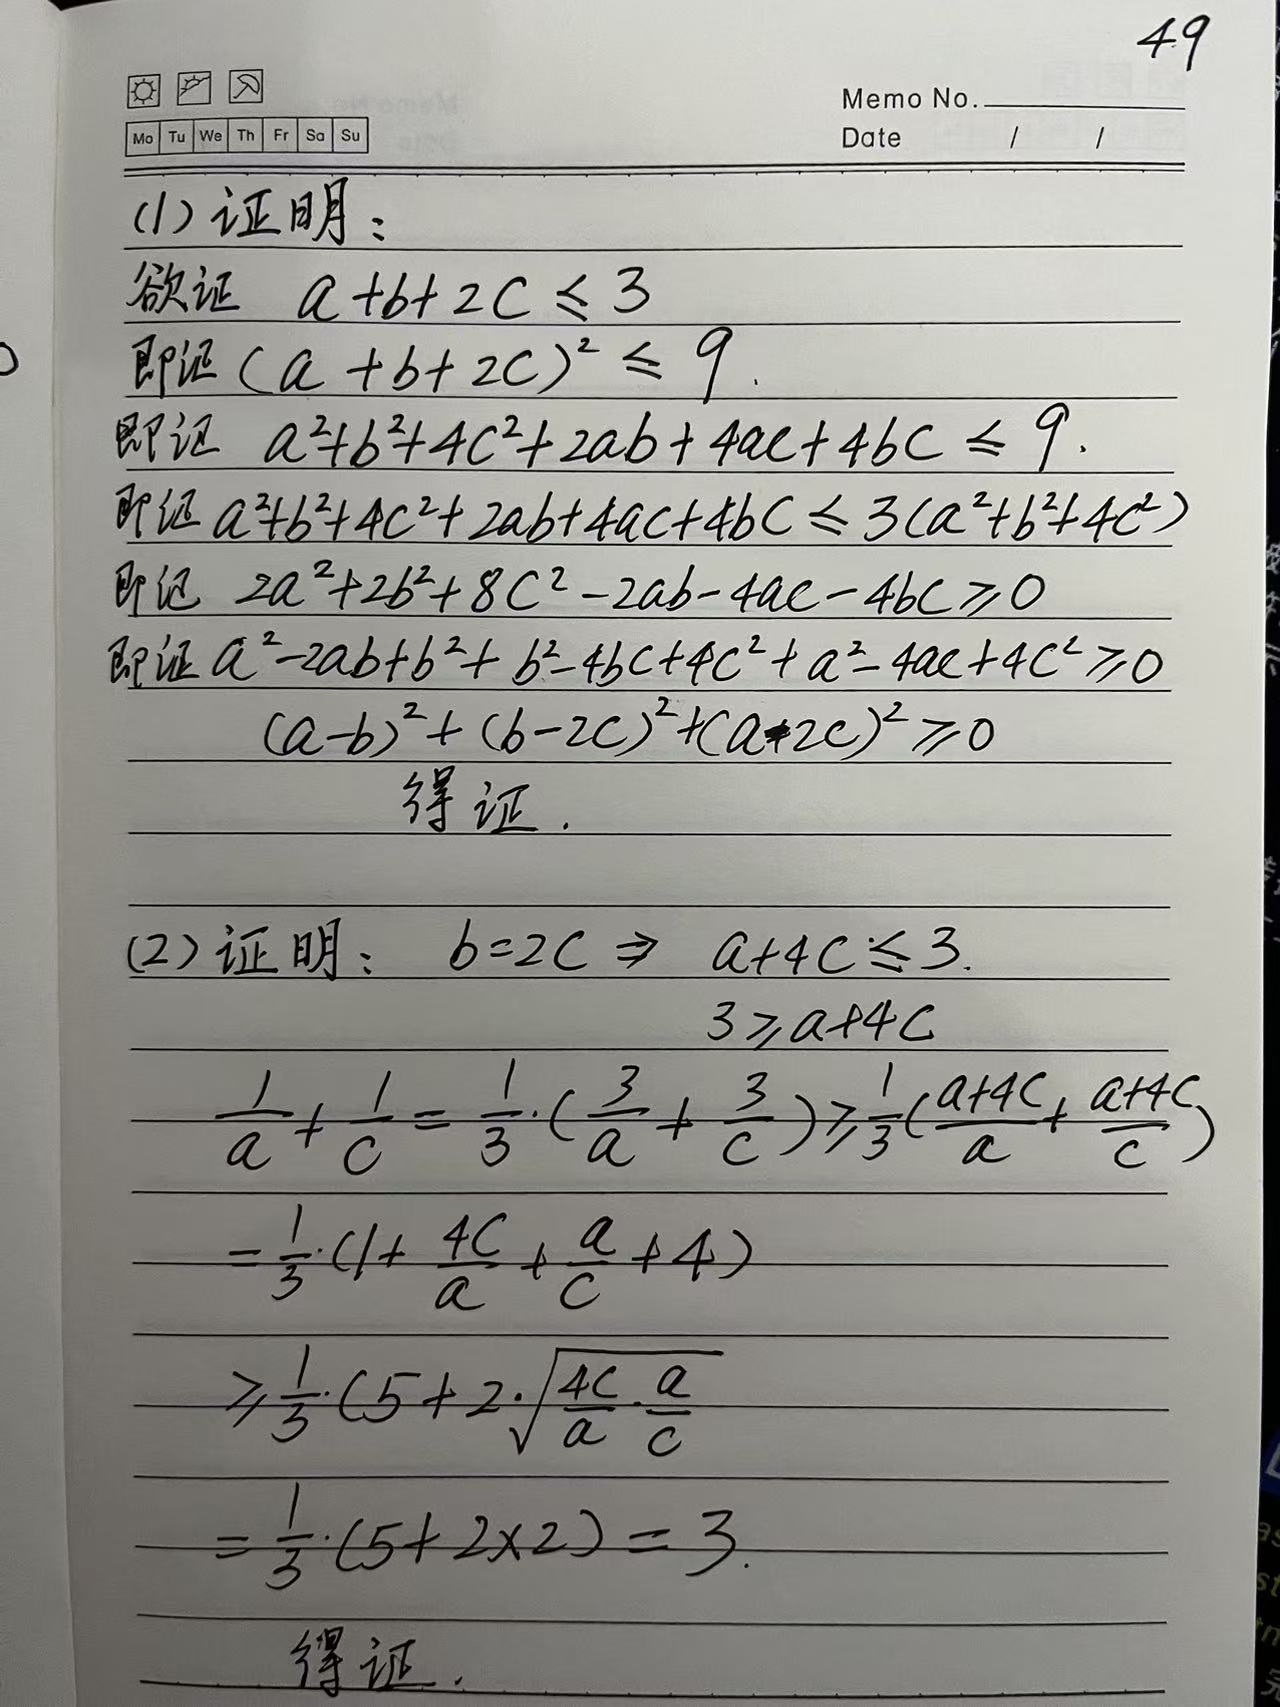 49
Memo No.
Mo Tu We Th Fr Sa Su
Date / /
(1) 证明:
欲证 a+b+2c≤3
即证(a+b+2c)²≤9.
即证 a²+b²+4c²+2ab+4ac+4bc≤9.
即证 a²+b²+4c²+2ab+4ac+4bc≤3(a²+b²+4c²)
即证 2a²+2b²+8c²-2ab-4ac-4bc≥0
即证 a²-2ab+b²+b²-4bc+4c²+a²-4ac+4c²≥0
(a-b)²+(b-2c)²+(a-2c)²≥0
得证.
(2) 证明: b=2c ⇒ a+4c≤3.
3≥a+4c
1/a+1/c=1/3·(3/a+3/c)≥1/3((a+4c)/a+(a+4c)/c)
=1/3·(1+4c/a+a/c+4)
≥1/3·(5+2·√(4c/a·a/c)
=1/3·(5+2×2)=3.
得证.